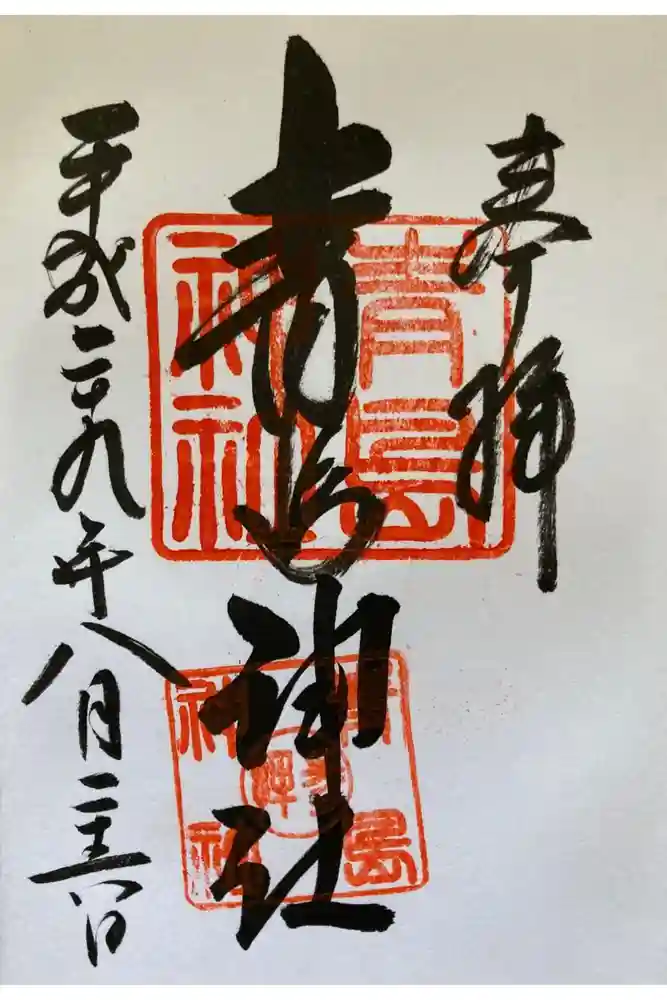 奉拝
青島神社
平成二十九年八月二十六日
青島
神社
青島
神社